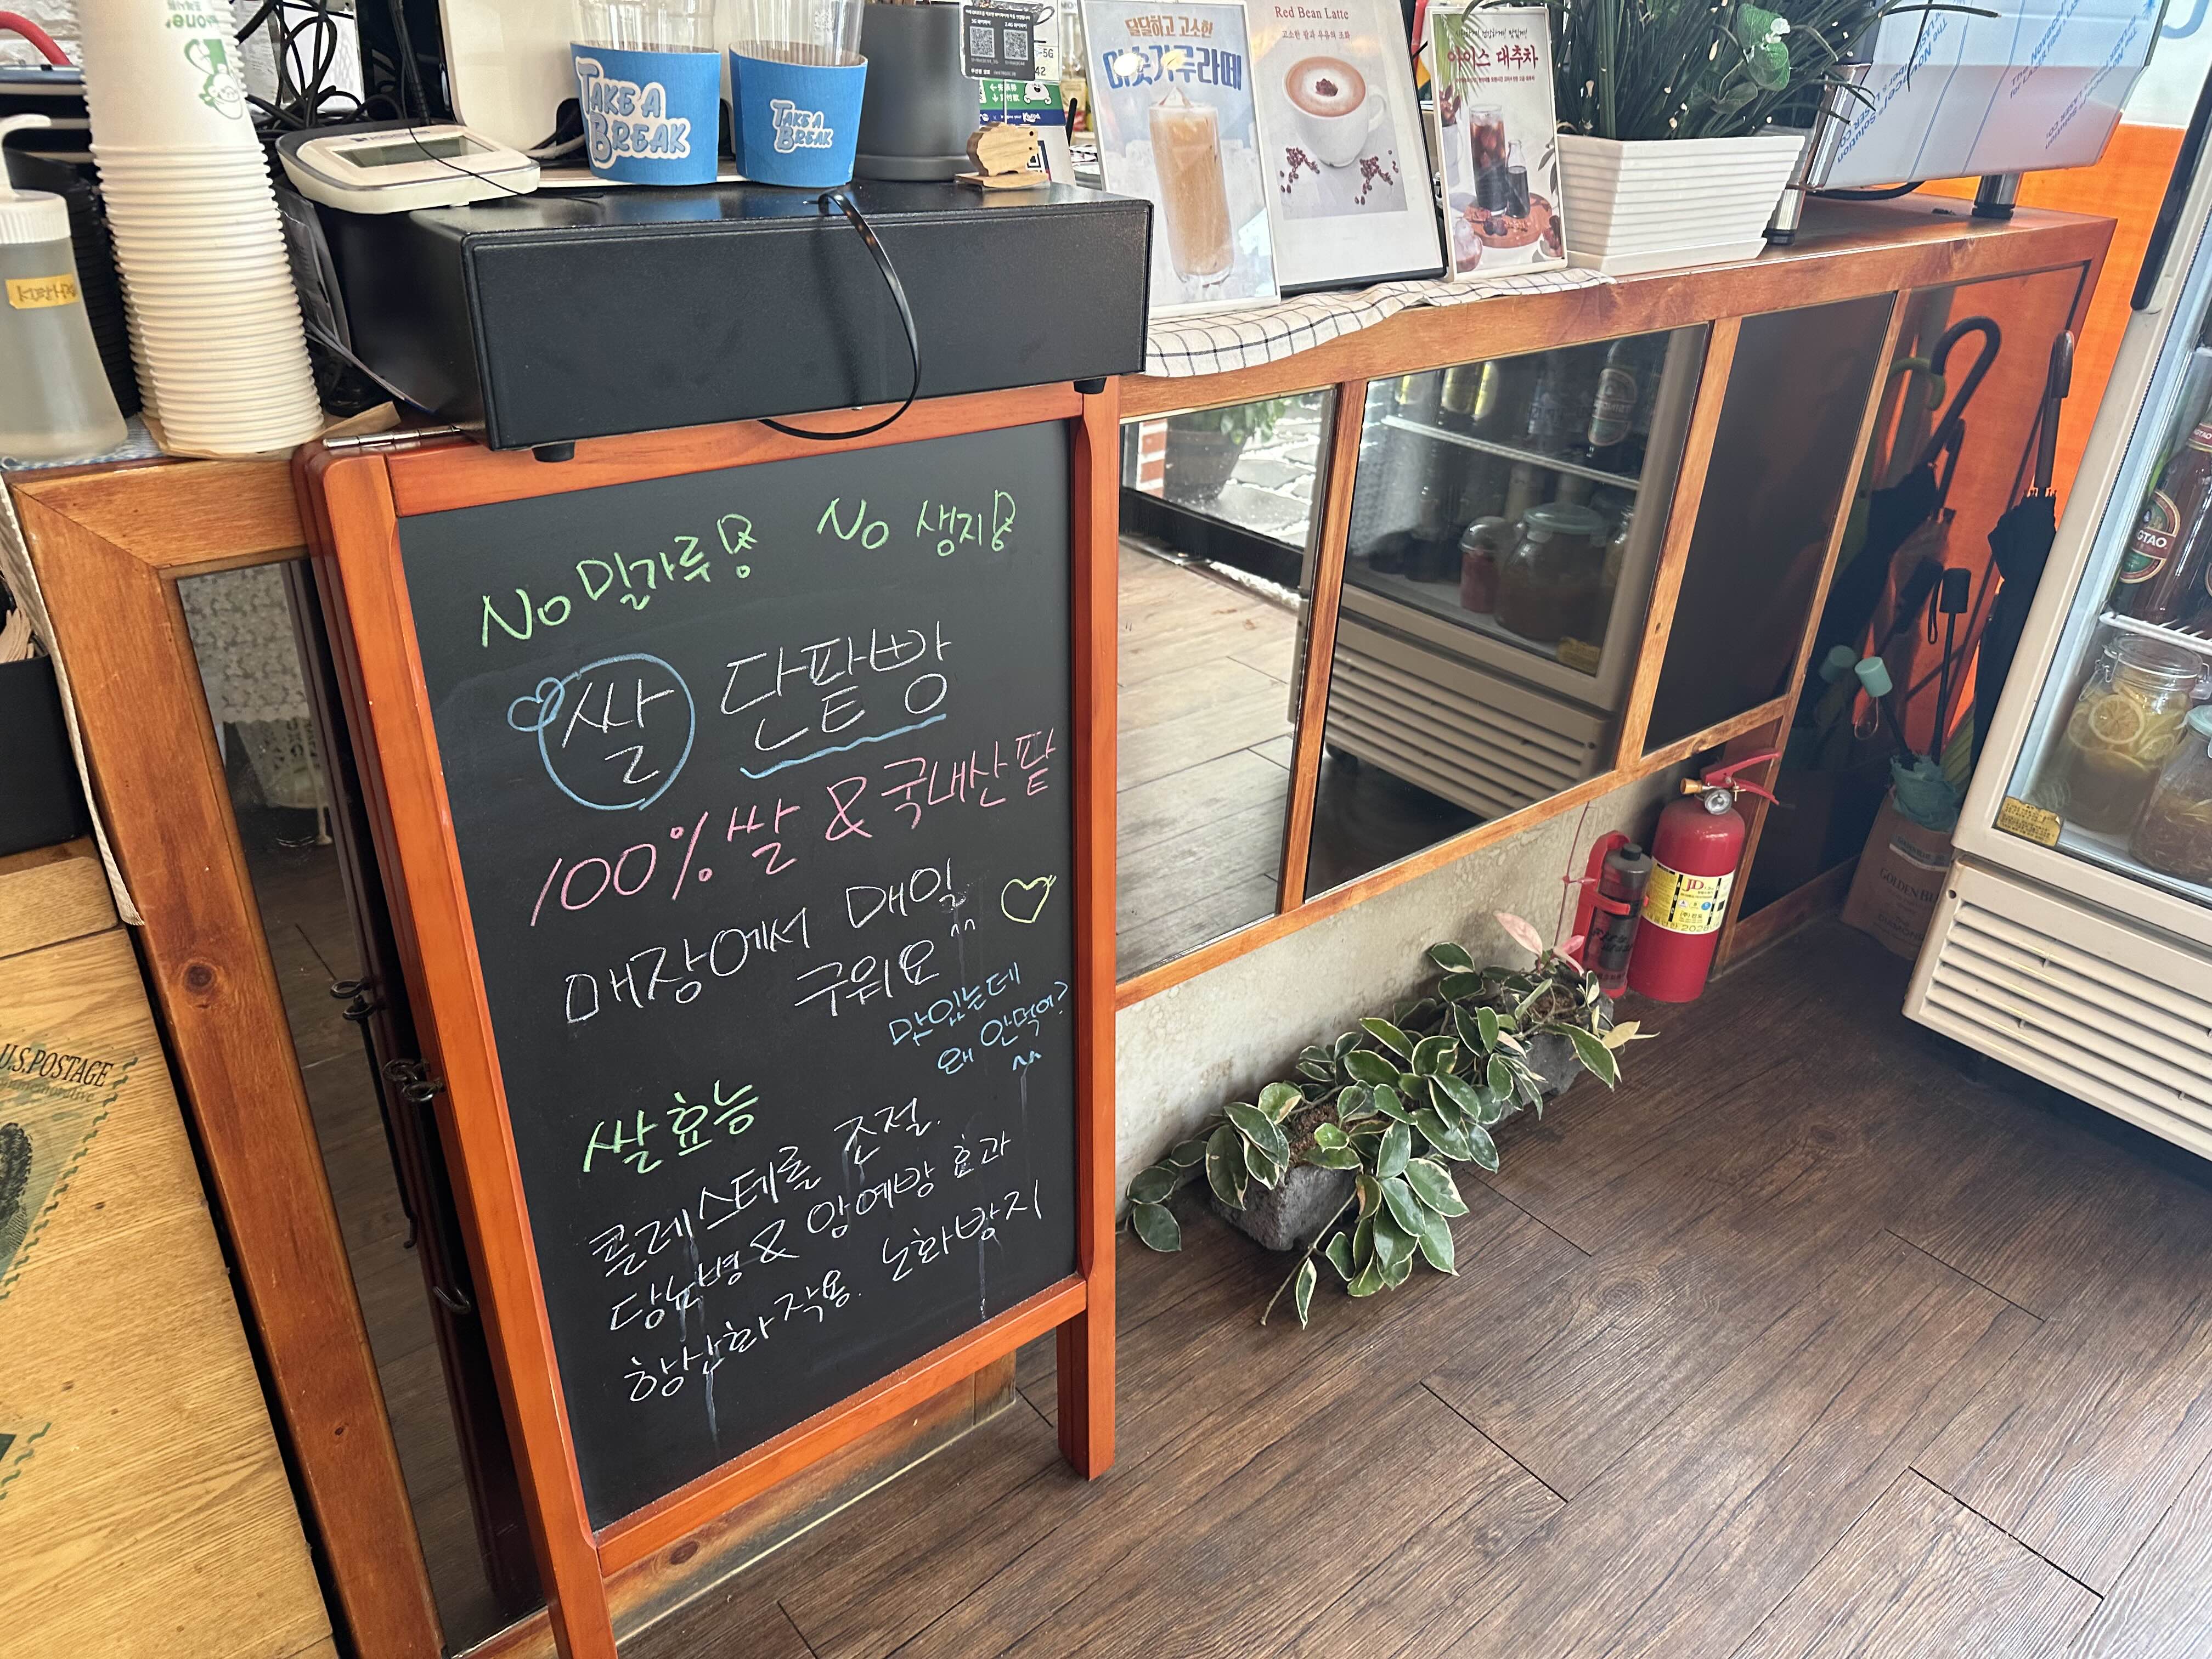 TAKE A
BREAK
TAKE A
BREAK
달달하고 고소한
미숫가루라떼
Red Bean Latte
고소한 팥과 우유의 조화
아이스 대추차
No 밀가루용
No 생지용
쌀 단팥빵
100% 쌀 & 국내산 팥
매장에서 매일
구워요 ^^
맛있는데
왜 안먹어?
^^
쌀효능
콜레스테롤 조절.
당뇨병 & 암예방 효과
항산화작용. 노화방지
U.S. POSTAGE
JD